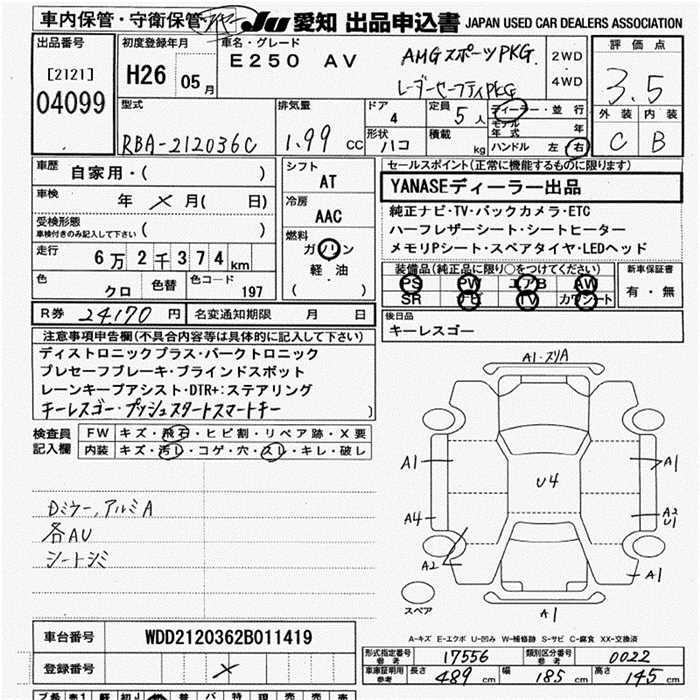 車内保管・守衛保管
JU 愛知 出品申込書 JAPAN USED CAR DEALERS ASSOCIATION
出品番号
[2121]
04099
初度登録年月
H26 05月
車名・グレード
E250 AV
AMGスポーツPKG.
レーダーセーフティPKG
2WD
・
4WD
評価点
3.5
外装 内装
C B
型式
RBA-212036C
排気量
1.99 CC
ドア
4
形状
ハコ
定員
5人
積載
kg
ディーラー・並行
モデル年式 年
ハンドル 左 右
車歴
自家用・( )
車検
年 × 月( 日)
受検形態
車検付きのみ記入して下さい ( )
走行
6万2千374km
色
クロ
色替
色コード
197
シフト
AT
冷房
AAC
燃料
ガソリン
軽油
( )
セールスポイント(正常に機能するものに限ります)
YANASEディーラー出品
純正ナビ・TV・バックカメラ・ETC
ハーフレザーシート・シートヒーター
メモリPシート・スペアタイヤ・LEDヘッド
装備品(純正品に限り○をつけてください)
PS PW エアB AW
SR ナビ TV カワシート
新車保証書
有・無
R券 24,170円
名変通知期限 月 日
後日品
キーレスゴー
注意事項申告欄(不具合内容等は具体的に記入して下さい)
ディストロニックプラス・パークトロニック
プレセーフブレーキ・ブラインドスポット
レーンキープアシスト・DTR+:ステアリング
キーレスゴー・プッシュスタートスマートキー
検査員
記入欄
FW キズ・飛石・ヒビ割・リペア跡・X要
内装 キズ・汚レ・コゲ・穴・スレ・キレ・破レ
Dミラー,アルミA
各AU
シートシミ
A1・スリA
A1
A1
U4
A4
A2
U1
A2
A1
A1
スペア
A-キズ E-エクボ U-凹み W-補修跡 S-サビ C-腐食 XX-交換済
車台番号
WDD2120362B011419
登録番号
×
形式指定番号
参考
17556
類別区分番号
参考
0022
車庫証明用
参考
長さ 489cm
幅 185cm
高さ 145cm